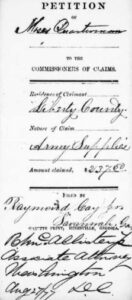 PETITION
OF
Moses Quarterman
TO THE
COMMISSIONERS OF CLAIMS.
Residence of Claimant
Liberty County
Nature of Claim
Army Supplies
Amount claimed, $237.50
FILED BY
Raymond Cay Jr
Savannah, Ga
John D. McAllister
Associate Attorney
Washington
Aug D.C